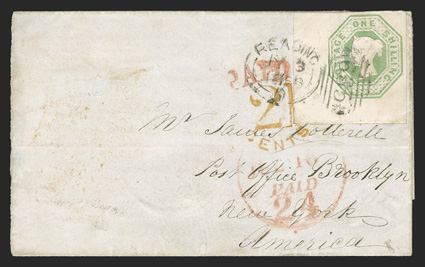 POSTAGE ONE SHILLING
READING
PAID
21
CENTS
Mr James Cotterell
Post Office Brooklyn
PAID
24
New York
America